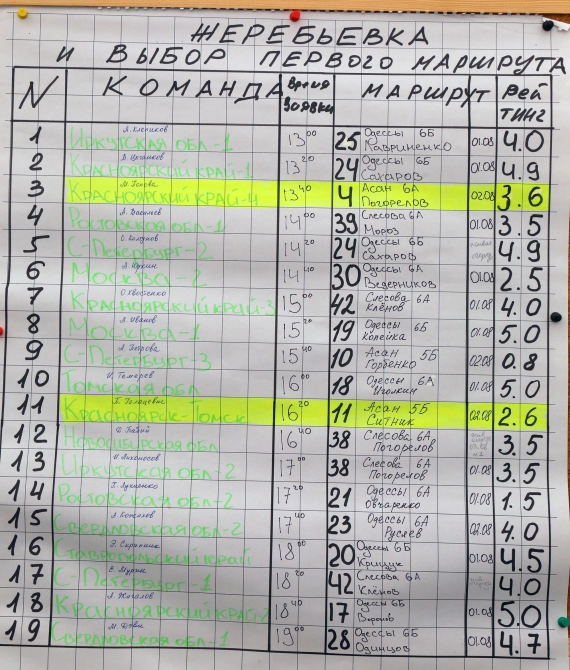 ЖЕРЕБЬЕВКА
И ВЫБОР ПЕРВОГО МАРШРУТА
N КОМАНДА Время заявки МАРШРУТ Рейтинг
1 Иркутская обл-1 13⁰⁰ 25 Одессы 6Б Лавриненко 01.08 4.0
2 Красноярский край-1 13²⁰ 24 Одессы 6Б Сахаров 01.08 4.9
3 Красноярский край-4 13⁴⁰ 4 Асан 6А Погорелов 02.08 3.6
4 Ростовская обл-1 14⁰⁰ 39 Слесова 6А Мороз 01.08 3.5
5 С-Петербург-2 14²⁰ 24 Одессы 6Б Сахаров 4.9
6 Москва-2 14⁴⁰ 30 Одессы 6А Ведерников 01.08 2.5
7 Красноярский край-3 15⁰⁰ 42 Слесова 6А Клёнов 01.08 4.0
8 А. Иванов Москва-1 15²⁰ 19 Одессы 6Б Копейка 01.08 5.0
9 С-Петербург-3 15⁴⁰ 10 Асан 5Б Горбенко 02.08 0.8
10 Томская обл 16⁰⁰ 18 Одессы 6А Уголкин 01.08 5.0
11 Красноярск-Томск 16²⁰ 11 Асан 5Б Ситник 02.08 2.6
12 Новосибирская обл 16⁴⁰ 38 Слесова 6А Погорелов 3.5
13 Иркутская обл-2 17⁰⁰ 38 Слесова 6А Погорелов 01.08 3.5
14 Ростовская обл-2 17²⁰ 21 Одессы 6А Овчаренко 01.08 1.5
15 Свердловская обл-2 17⁴⁰ 23 Одессы 6А Руслев 02.08 4.0
16 Э. Скрипник Ставропольский край 18⁰⁰ 20 Одессы 6Б Крищук 01.08 4.5
17 Е. Мурин С-Петербург-1 18²⁰ 42 Слесова 6А Клёнов 4.0
18 Красноярский край-2 18⁴⁰ 17 Одессы 6Б Воронов 01.08 5.0
19 Свердловская обл-1 19⁰⁰ 28 Одессы 6Б Одинцов 01.08 4.7